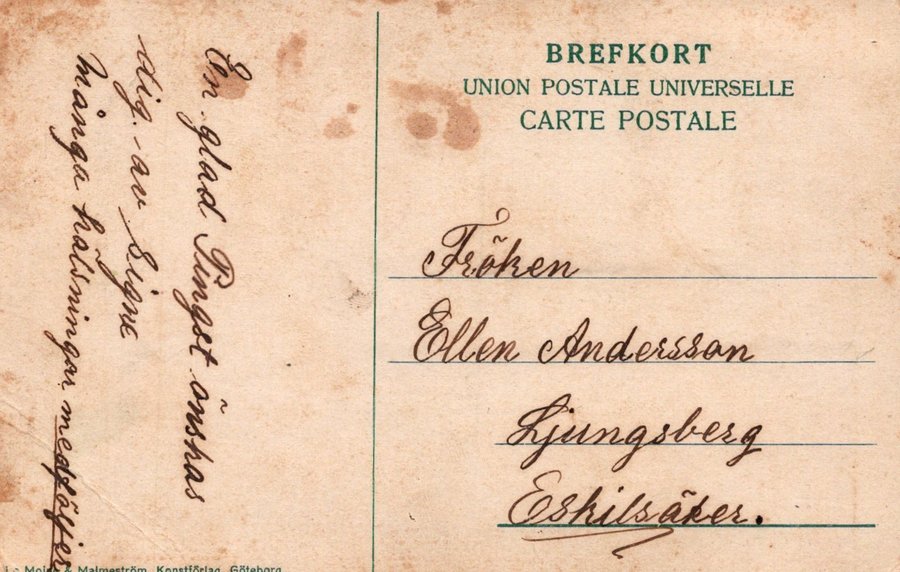 En glad Pingst önskas
dig. av Signe
många hälsningar medföljer
BREFKORT
UNION POSTALE UNIVERSELLE
CARTE POSTALE
Fröken
Ellen Andersson
Ljungsberg
Eskilsäker.
& Malmeström, Konstförlag, Göteborg